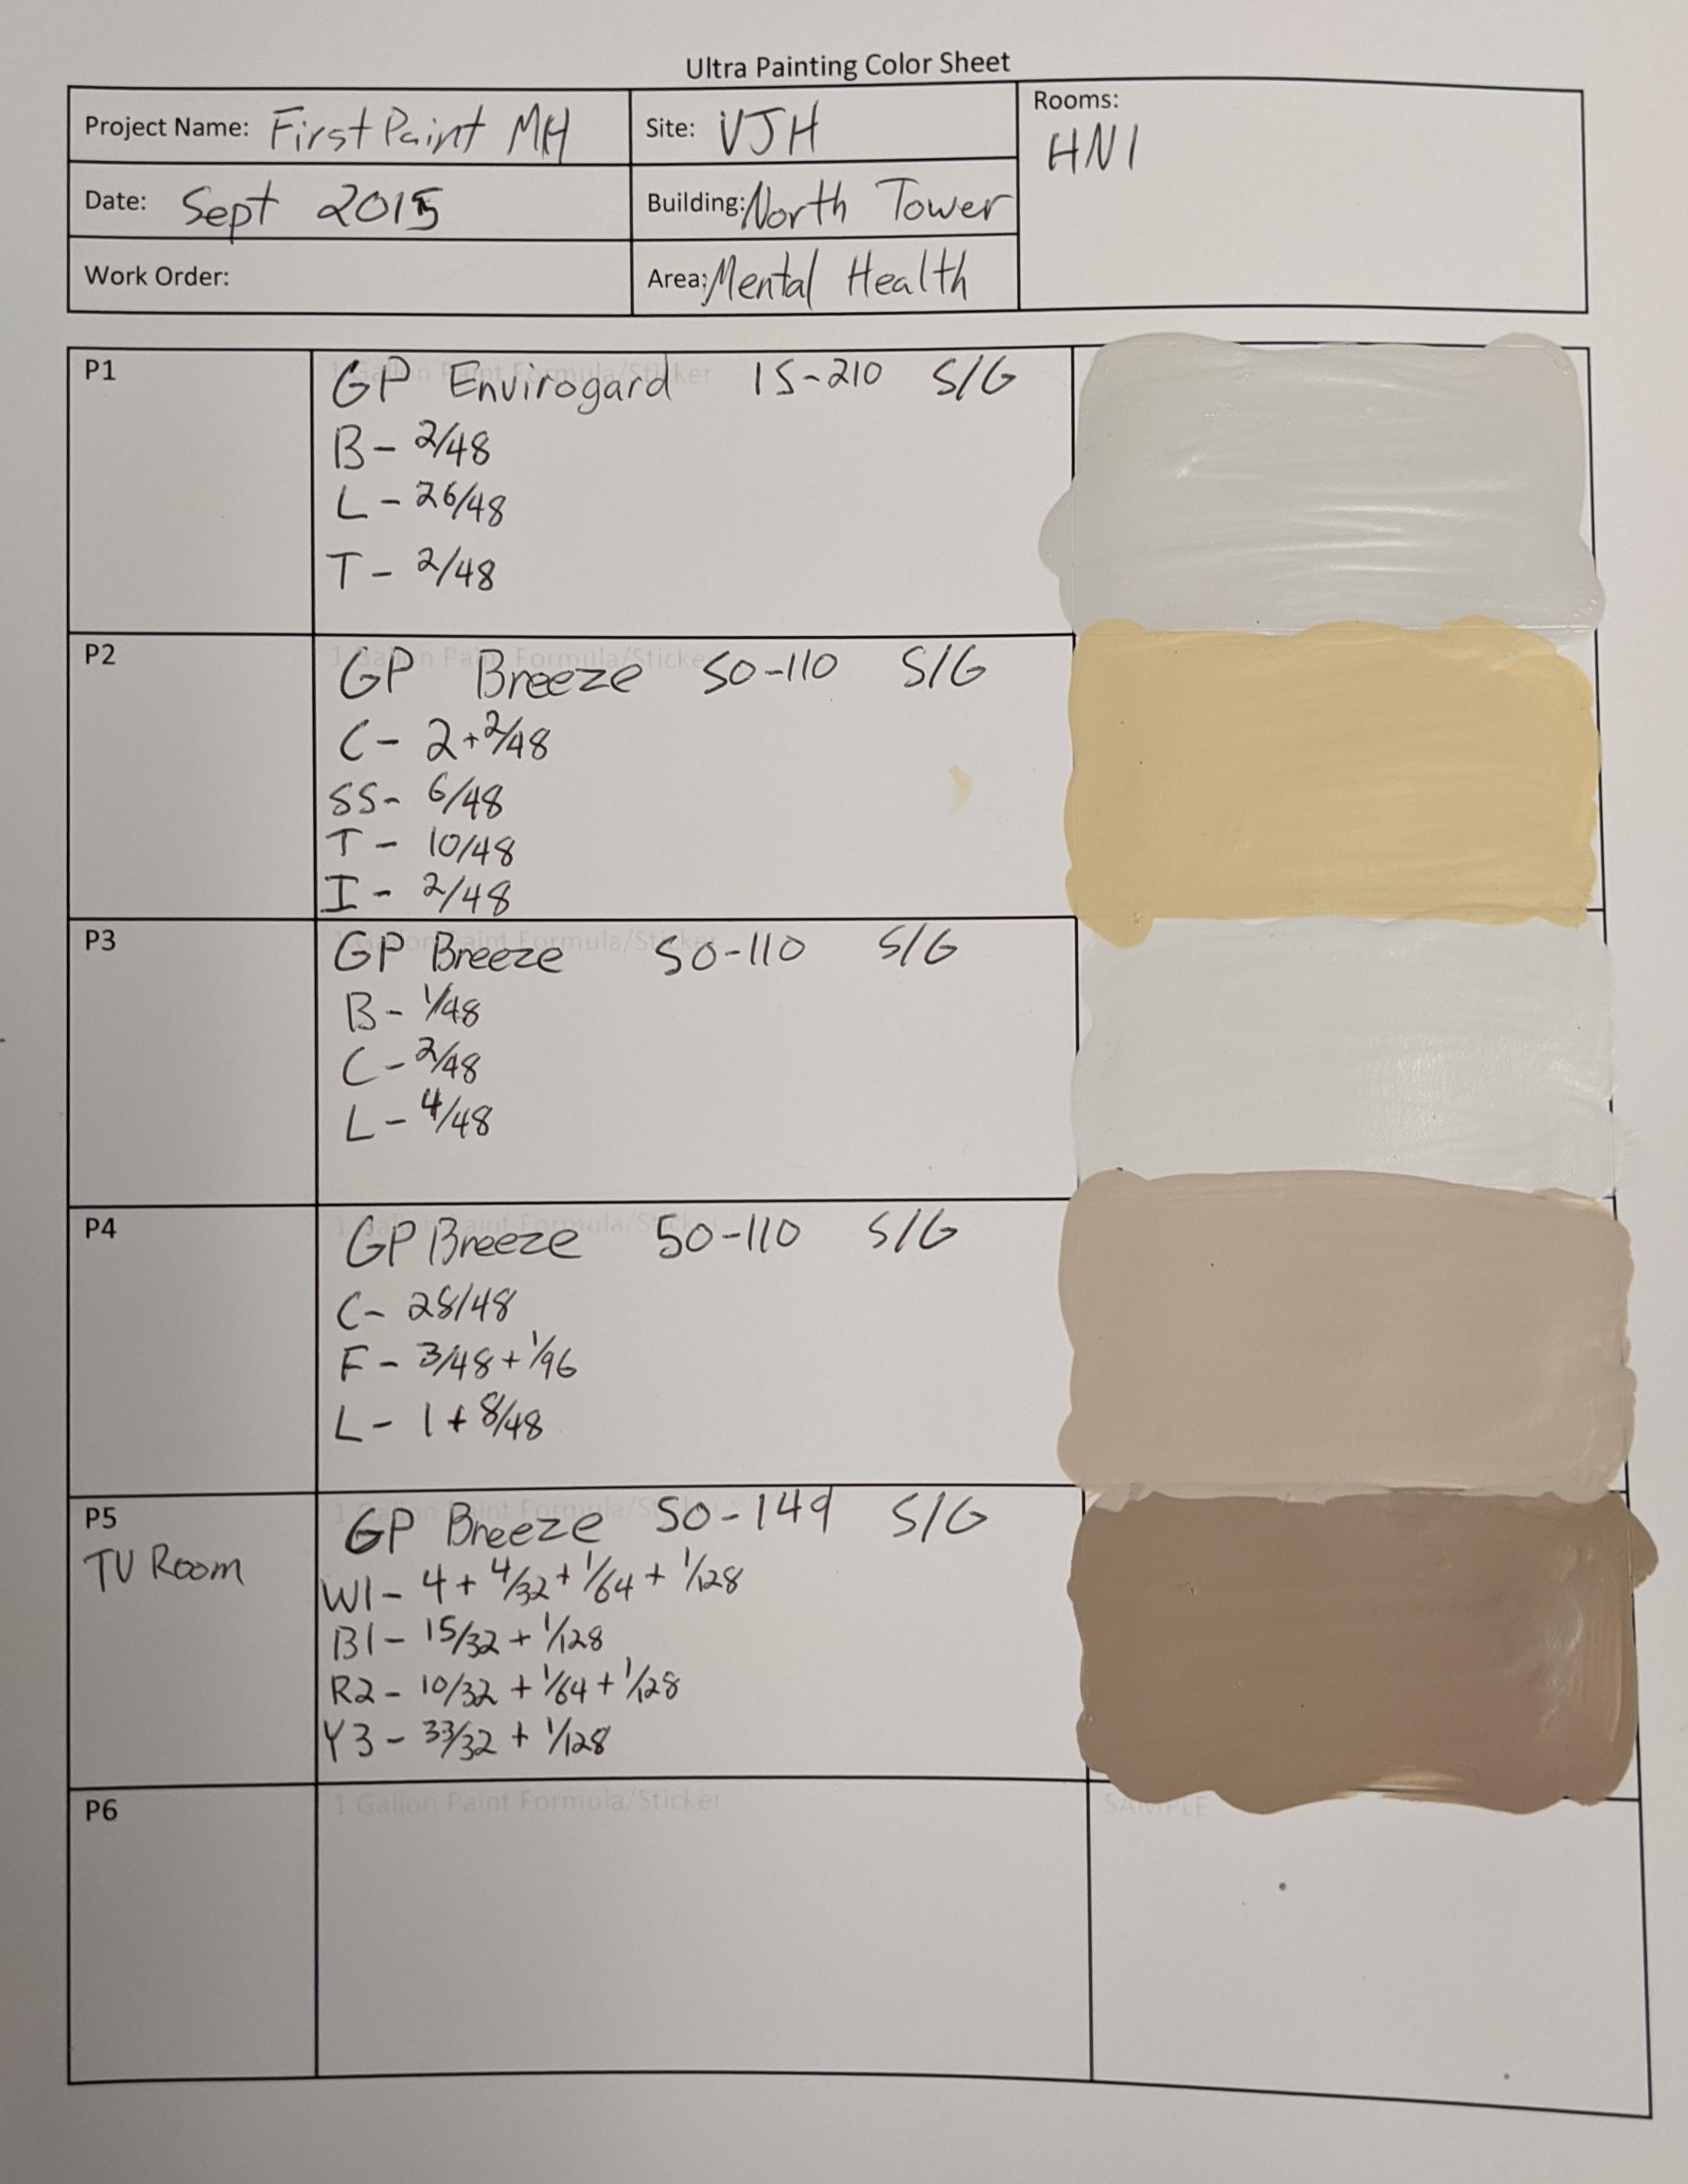 Ultra Painting Color Sheet
Project Name: First Paint MH
Site: VJH
Rooms:
HN1
Date: Sept 2015
Building: North Tower
Work Order:
Area: Mental Health
P1
1 Gallon Paint Formula/Sticker
GP Envirogard 15-210 S/G
B - 2/48
L - 26/48
T - 2/48
P2
1 Gallon Paint Formula/Sticker
GP Breeze 50-110 S/G
C - 2+2/48
SS - 6/48
T - 10/48
I - 2/48
P3
1 Gallon Paint Formula/Sticker
GP Breeze 50-110 S/G
B - 1/48
C - 2/48
L - 4/48
P4
1 Gallon Paint Formula/Sticker
GP Breeze 50-110 S/G
C - 28/48
F - 3/48 + 1/96
L - 1 + 8/48
P5
TV Room
1 Gallon Paint Formula/Sticker
GP Breeze 50-149 S/G
W1 - 4 + 4/32 + 1/64 + 1/128
B1 - 15/32 + 1/128
R2 - 10/32 + 1/64 + 1/128
Y3 - 33/32 + 1/128
P6
1 Gallon Paint Formula/Sticker
SAMPLE